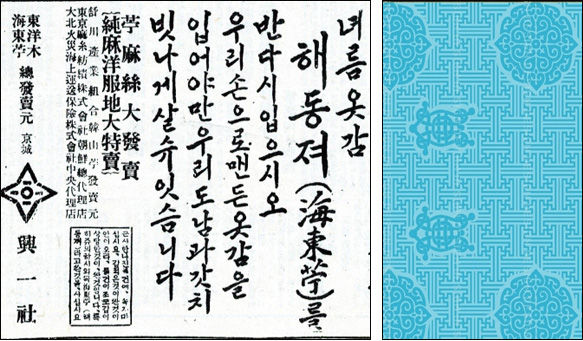 녀름옷감
해동져(海東苧)를
반다시입으시오
우리손으로맨든옷감을
입어야만우리도남과갓치
빗나게살슈잇슴니다
苧麻絲大發賣
【純麻洋服地大特賣】
舒川産業組合韓山苧發賣元
東京麻糸紡績株式會社朝鮮總代理店
大北火災海上運送保險株式會社中央代理店
東洋木
海東苧
總發賣元 京城
興一社